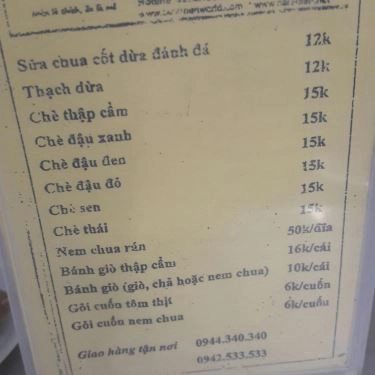 www. world.com
Sữa chua cốt dừa đánh đá 12k
Thạch dừa 12k
Chè thập cẩm 15k
Chè đậu xanh 15k
Chè đậu đen 15k
Chè đậu đỏ 15k
Chè sen 15k
Chè thái 15k
Nem chua rán 50k/đĩa
Bánh giò thập cẩm 16k/cái
Bánh giò (giò, chả hoặc nem chua) 10k/cái
Gỏi cuốn tôm thịt 6k/cuốn
Gỏi cuốn nem chua 6k/cuốn
Giao hàng tận nơi 0944.340.340
0942.533.533